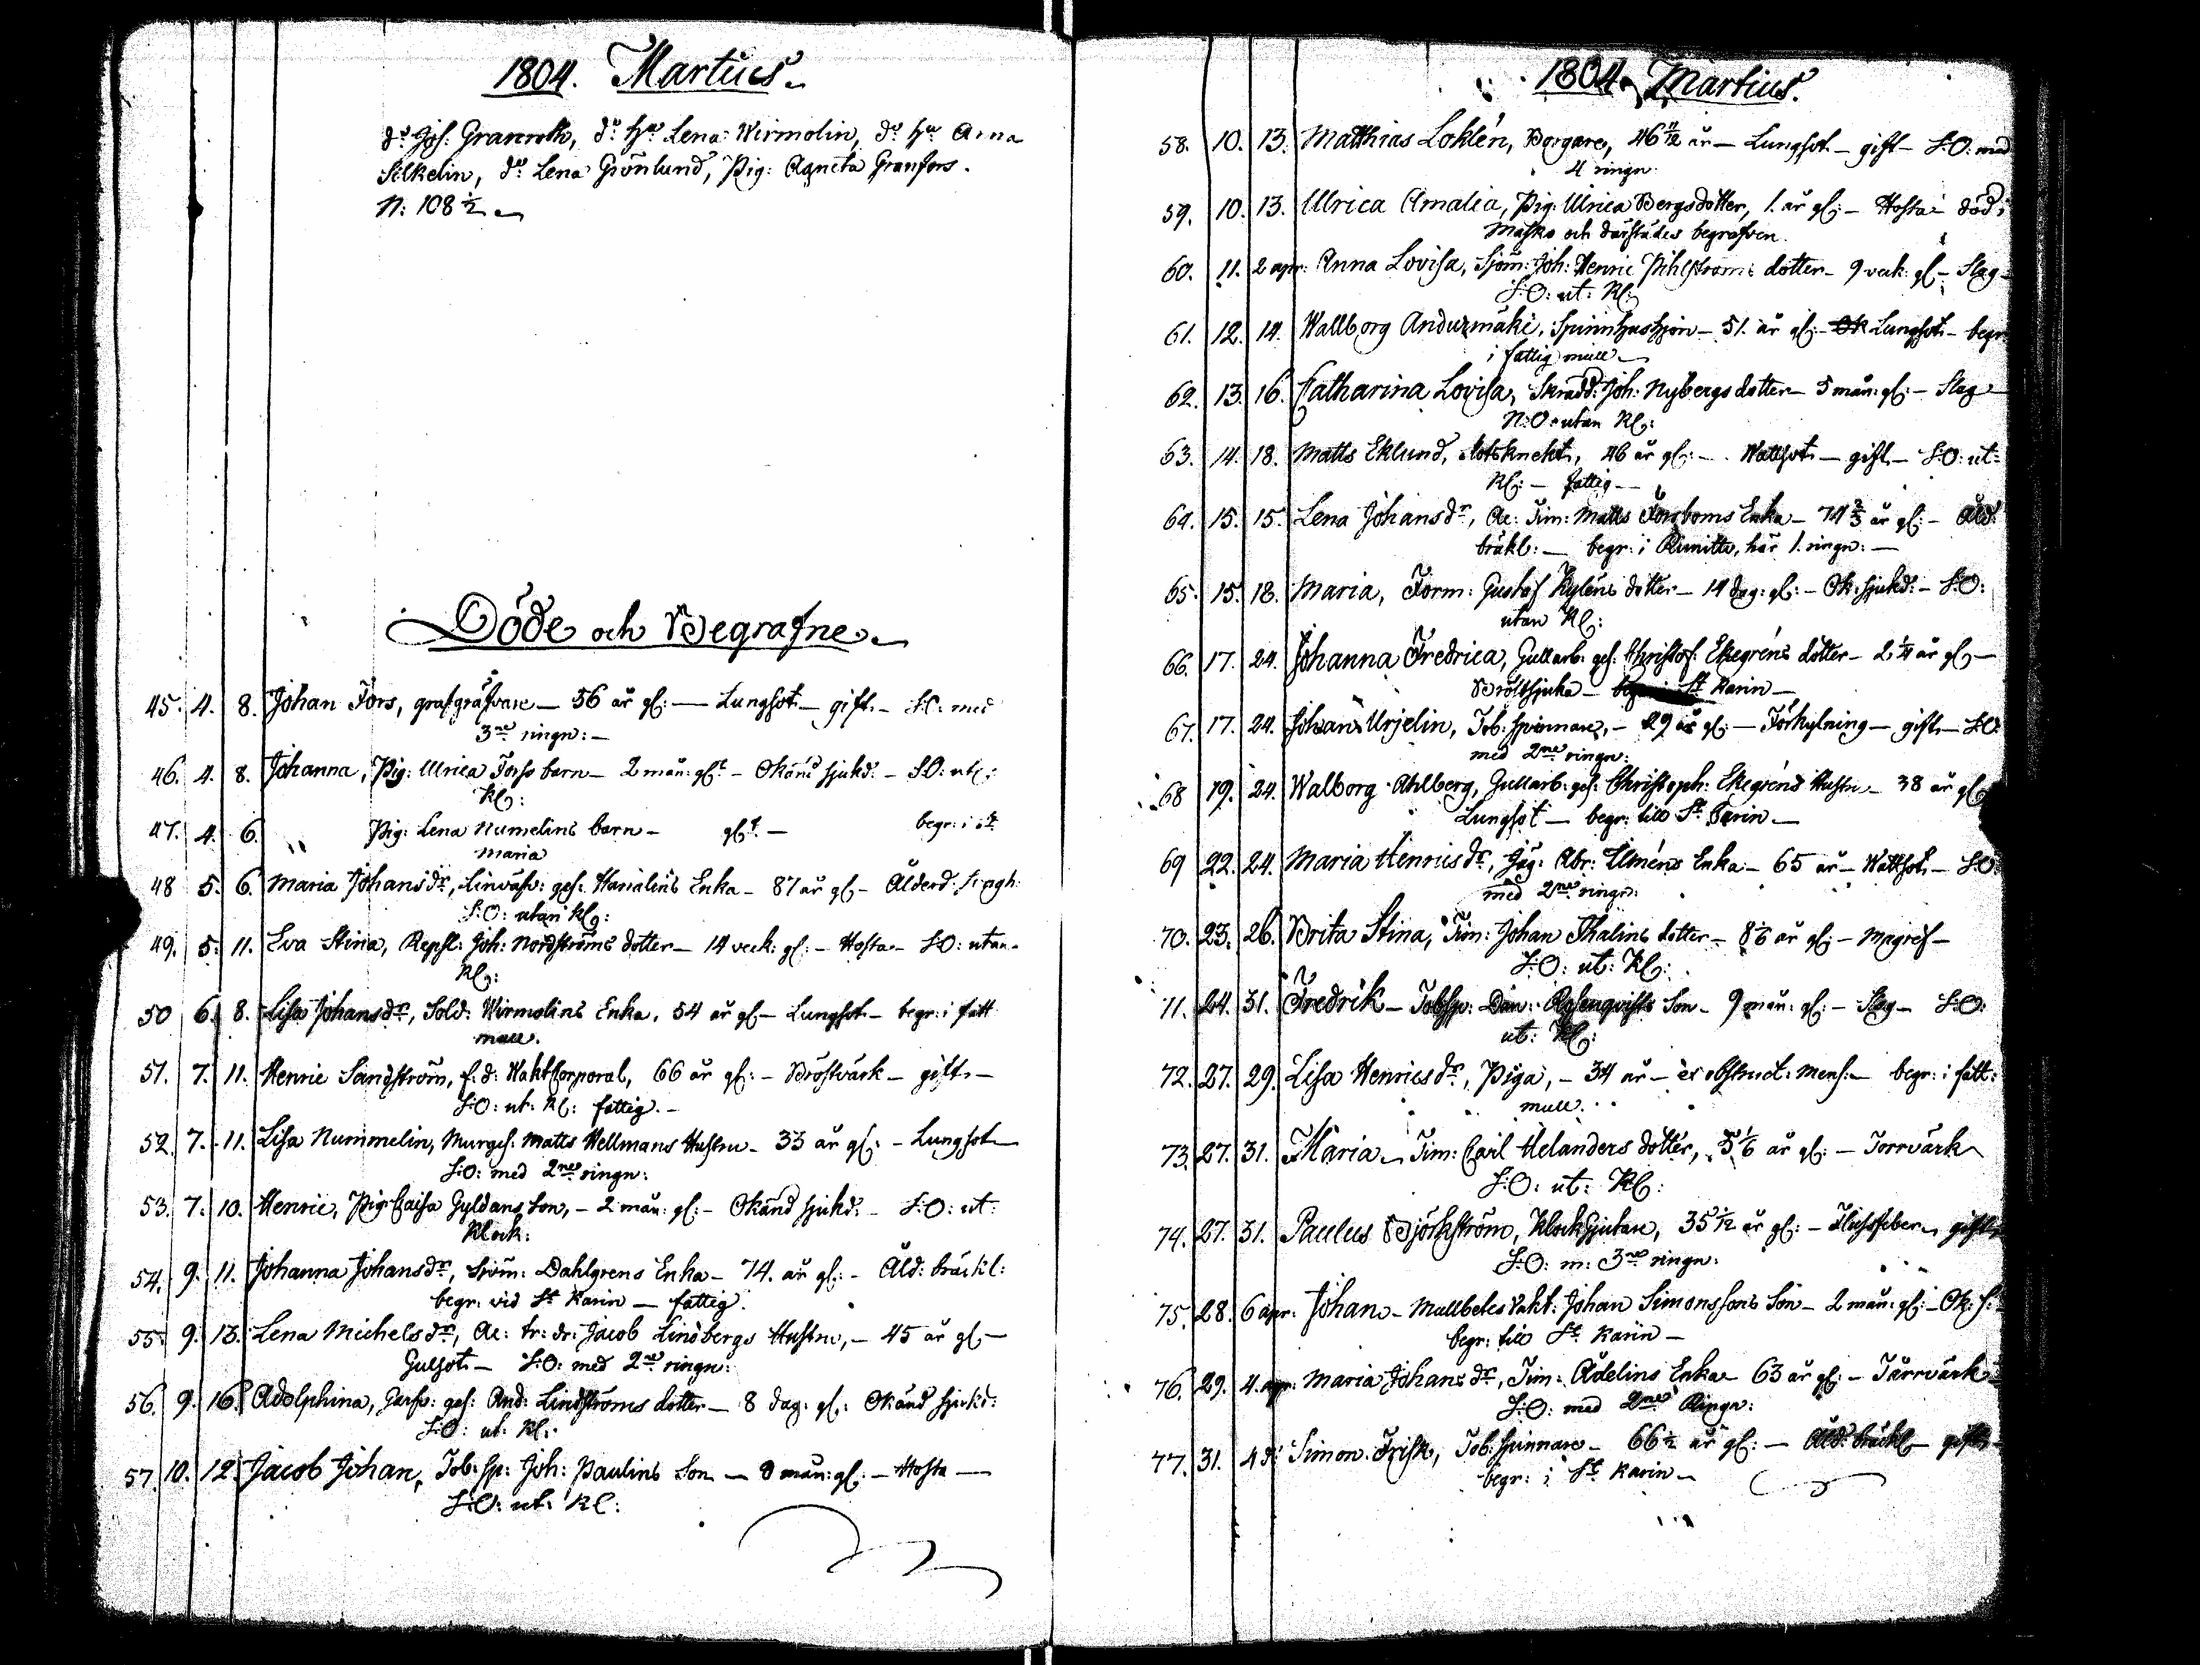 1804. Martius.
d:o Joh: Granroth, d:o H:u Lena Wirmolin, d:o H:u Anna
Silkelin, d:o Lena Grönlund, Pig: Agneta Granfors.
N: 108 1/2
Döde och Begrafne.
45. 4. 8. Johan Fors, grafgräfvare — 56 år gl: — Lungsot — gift — S:O: med
3:ne ringn: —
46. 4. 8. Johanna, Pig: Ulrica Forss barn — 2 mån: gl:t — Okänd sjukd: — S:O: ut:
Kl:
47. 4. 6. Pig: Lena Numelins barn — gl:t — begr: i
Maria
48 5. 6. Maria Johansd:r, Linväfv: ges: Enka — 87 år gl — Ålderd:
S:O: utan Kl:
49. 5. 11. Eva Stina, Repsl: Joh: Nordströms dotter — 14 veck: gl: — Hosta — S:O: utan
Kl:
50 6. 8. Lisa Johansd:r, Sold: Wirmolins Enka, 54 år gl — Lungsot — begr: i fatt
mull.
51. 7. 11. Henric Sandström, f: d: Wakt Corporal, 66 år gl: — Bröstvärk — gift —
S:O: ut: Kl: fattig. —
52. 7. 11. Lisa Nummelin, Murges: Matts Hellmans Hustru — 33 år gl: — Lungsot —
S:O: med 2:ne ringn:
53. 7. 10. Henric, Pig: Caisa Gyldans Son, — 2 mån: gl: — Okänd sjukd: — S:O: ut:
Klock:
54. 9. 11. Johanna Johansd:r, Dahlgrens Enka — 74. år gl: — Åld: bräckl:
begr: vid S:t Karin — fattig.
55. 9. 13. Lena Michelsd:r, Ac: tr: dr: Jacob Lindbergs Hustru, — 45 år gl —
Gulsot — S:O: med 2:ne ringn:
56. 9. 16. Adolphina, Garfv: ges: And: Lindströms dotter — 8 dag: gl: Okänd sjukd:
S:O: ut: Kl:
57. 10. 12. Jacob Johan, Tob: sp: Joh: Paulins Son — 8 mån: gl: — Hosta —
S:O: ut: Kl:
1804. Martius.
58. 10. 13. Matthias Loklén, Borgare, 46 11/12 år — Lungsot — gift — S:O: med
4 ringn:
59. 10. 13. Ulrica Amalia, Pig: Ulrica Bergs dotter, 1. år gl: — Hosta — död i
Masko och därstädes begrafven.
60. 11. 2 apr: Anna Lovisa, Sjöm: Joh: Henric Pihlströms dotter — 9 veck: gl — Slag —
S:O: ut: Kl:
61. 12. 14. Wallborg Andurmäki, Spinnhushjon — 51. år gl: — Lungsot — begr:
i fattig mull —
62. 13. 16. Catharina Lovisa, Skradd: Joh: Nybergs dotter — 5 mån: gl: — Slag —
N:O: utan Kl:
63. 14. 18. Matts Eklund, Båtsknekt, 46 år gl: — Wattsot — gift — S:O: ut:
Kl: — fattig —
64. 15. 15. Lena Johansd:r, Ac: Tim: Matts Forsboms Enka — 74 2/3 år gl: — Åld:
bräkl: — begr: i Rimitto, här 1. ringn: —
65. 15. 18. Maria, Form: Gustaf Kyléns dotter — 14 dag: gl: — Ok: sjukd: — S:O:
utan Kl:
66. 17. 24. Johanna Fredrica, Gullarb: ges: Christof: Ekegréns dotter — 2 1/4 år gl —
Bröstsjuka — S:t Karin —
67. 17. 24. Johan Urjelin, Tob: spinnare, — 29 år gl: — Förkylning — gift — S:O:
med 2:ne ringn:
68 19. 24. Walborg Ahlberg, Gullarb: ges: Christoph: Ekegréns Hustru — 38 år gl
Lungsot — begr: till S:t Karin —
69 22. 24. Maria Henricsd:r, Abr: Elméns Enka — 65 år — Wattsot — S:O:
med 2:ne ringn:
70. 23. 26. Brita Stina, Tim: Johan Thalins dotter — 8 1/6 år gl: — Magref —
S:O: ut: Kl:
71. 24. 31. Fredrik — Tobsp: Dan: Rosenqvists Son — 9 mån: gl: — Slag — S:O:
ut: Kl:
72. 27. 29. Lisa Henricsd:r, Piga, — 34 år — ex obstruct: mens: — begr: i fatt:
mull.
73. 27. 31. Maria — Tim: Carl Helanders dotter, 5 1/6 år gl: — Torrvärk
S:O: ut: Kl:
74. 27. 31. Paulus Björkström, Klockgjutare, 35 1/12 år gl: — Flussfeber — gift
S:O: m: 3:ne ringn:
75. 28. 6 apr: Johan — Mullbetes Vakt: Johan Simonssons Son — 2 mån: gl: — Ok: s:
begr: till S:t Karin —
76. 29. 4. apr: Maria Johansd:r, Tim: Ådelins Enka — 63 år gl: — Tärrvärk
S:O: med 2:ne Ringn:
77. 31. 4 d:o Simon Frisk, Tob: spinnare — 66 1/2 år gl: — Åld: bräckl — gift
begr: i S:t Karin —